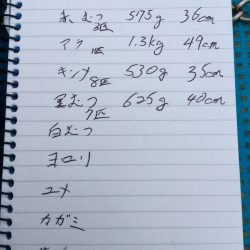 赤むつ 575g 36cm
2匹
アラ 1匹 1.3kg 49cm
キンメ 8匹 530g 35cm
黒むつ 7匹 625g 40cm
白むつ
ヨロリ
ユメ
カガミ